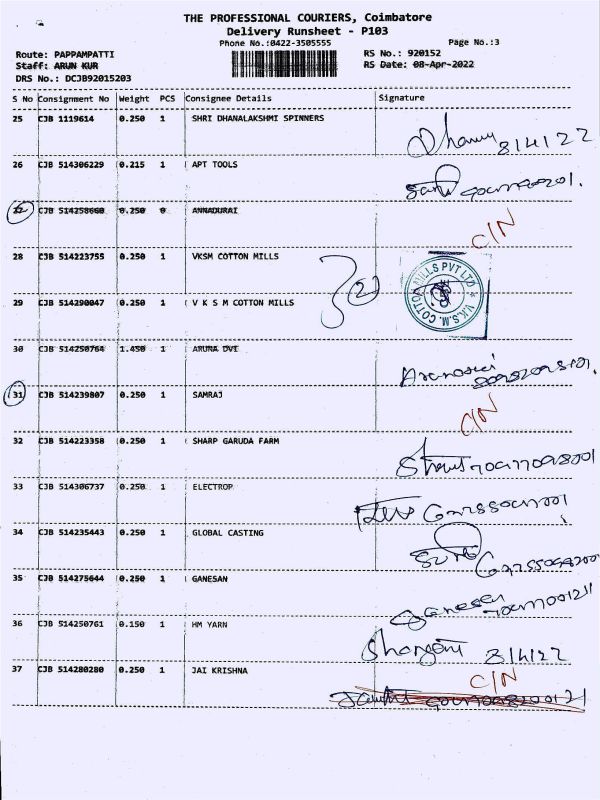 THE PROFESSIONAL COURIERS, Coimbatore
Delivery Runsheet - P103
Phone No.:0422-3505555 Page No.:3
Route: PAPPAMPATTI RS No.: 920152
Staff: ARUN KUR RS Date: 08-Apr-2022
DRS No.: DCJB92015203
S No Consignment No Weight PCS Consignee Details Signature
25 CJB 1119614 0.250 1 SHRI DHANALAKSHMI SPINNERS
8/4/22
26 CJB 514306229 0.215 1 APT TOOLS
27 CJB 514258660 0.250 0 ANNADURAI
C/N
28 CJB 514223755 0.250 1 VKSM COTTON MILLS
(2)
V.K.S.M. COTTON MILLS PVT LTD
29 CJB 514290047 0.250 1 V K S M COTTON MILLS
30 CJB 514250764 1.450 1 ARUNA DVE
31 CJB 514239807 0.250 1 SAMRAJ
C/N
32 CJB 514223358 0.250 1 SHARP GARUDA FARM
33 CJB 514306737 0.250 1 ELECTROP
34 CJB 514235443 0.250 1 GLOBAL CASTING
35 CJB 514275644 0.250 1 GANESAN
Ganesan
36 CJB 514250761 0.150 1 HM YARN
8/4/22
37 CJB 514280280 0.250 1 JAI KRISHNA
C/N